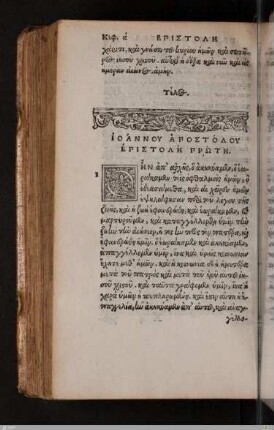 Κεφ. α ΕΠΙΣΤΟΛΗ
χάριτι, καὶ γνώσει τοῦ κυρίου ἡμῶν καὶ σωτῆ-
ρος ἰησοῦ χριστοῦ. αὐτῷ ἡ δόξα καὶ νῦν καὶ εἰς
ἡμέραν αἰῶνος. ἀμήν.
Τέλος.
ΙΩΑΝΝΟΥ ΑΠΟΣΤΟΛΟΥ
ΕΠΙΣΤΟΛΗ ΠΡΩΤΗ.
Ο ΗΝ ἀπ' ἀρχῆς, ὃ ἀκηκόαμεν, ὃ ἑω-
ράκαμεν τοῖς ὀφθαλμοῖς ἡμῶν, ὃ
ἐθεασάμεθα, καὶ αἱ χεῖρες ἡμῶν
ἐψηλάφησαν περὶ τοῦ λόγου τῆς
ζωῆς, καὶ ἡ ζωὴ ἐφανερώθη, καὶ ἑωράκαμεν, καὶ
μαρτυροῦμεν, καὶ ἀπαγγέλλομεν ὑμῖν τὴν
ζωὴν τὴν αἰώνιον, ἥτις ἦν πρὸς τὸν πατέρα, καὶ
ἐφανερώθη ἡμῖν. ὃ ἑωράκαμεν, καὶ ἀκηκόαμεν,
ἀπαγγέλλομεν ὑμῖν, ἵνα καὶ ὑμεῖς κοινωνίαν
ἔχητε μεθ' ἡμῶν. καὶ ἡ κοινωνία δὲ ἡ ἡμετέρα
μετὰ τοῦ πατρὸς καὶ μετὰ τοῦ υἱοῦ αὐτοῦ ἰη-
σοῦ χριστοῦ. καὶ ταῦτα γράφομεν ὑμῖν, ἵνα ἡ
χαρὰ ὑμῶν ᾖ πεπληρωμένη. καὶ ἔστιν αὕτη ἡ
ἐπαγγελία, ἣν ἀκηκόαμεν ἀπ' αὐτοῦ, καὶ ἀναγ-
γέλλο-